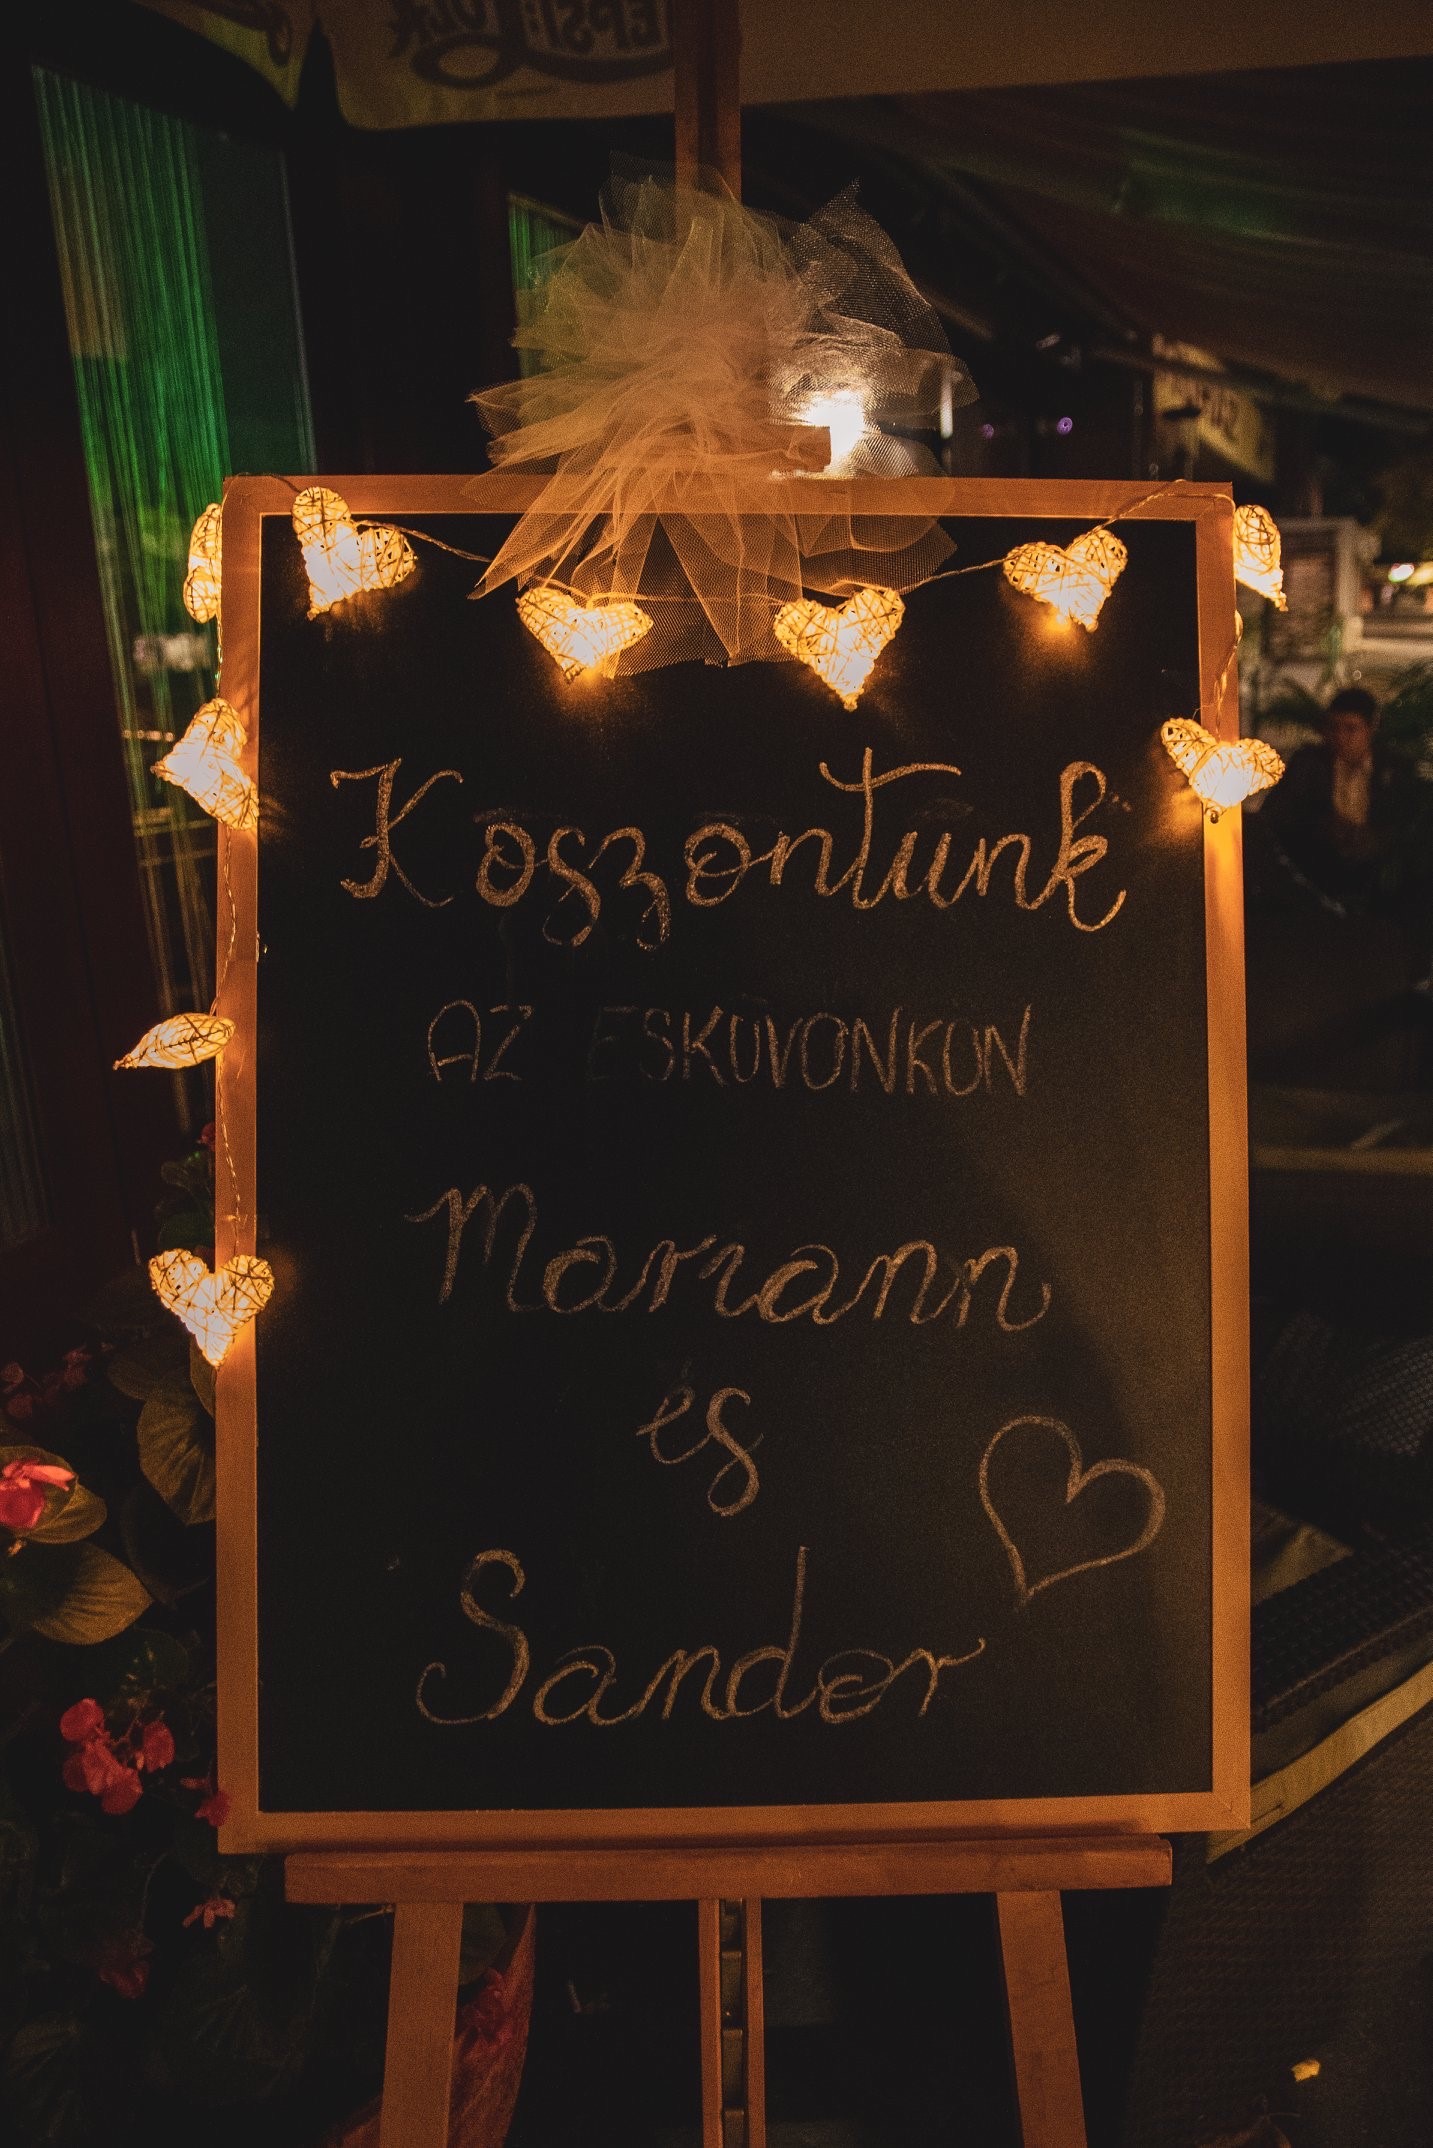 Koszontunk
AZ ESKÜVONKON
Mariann
és
Sandor